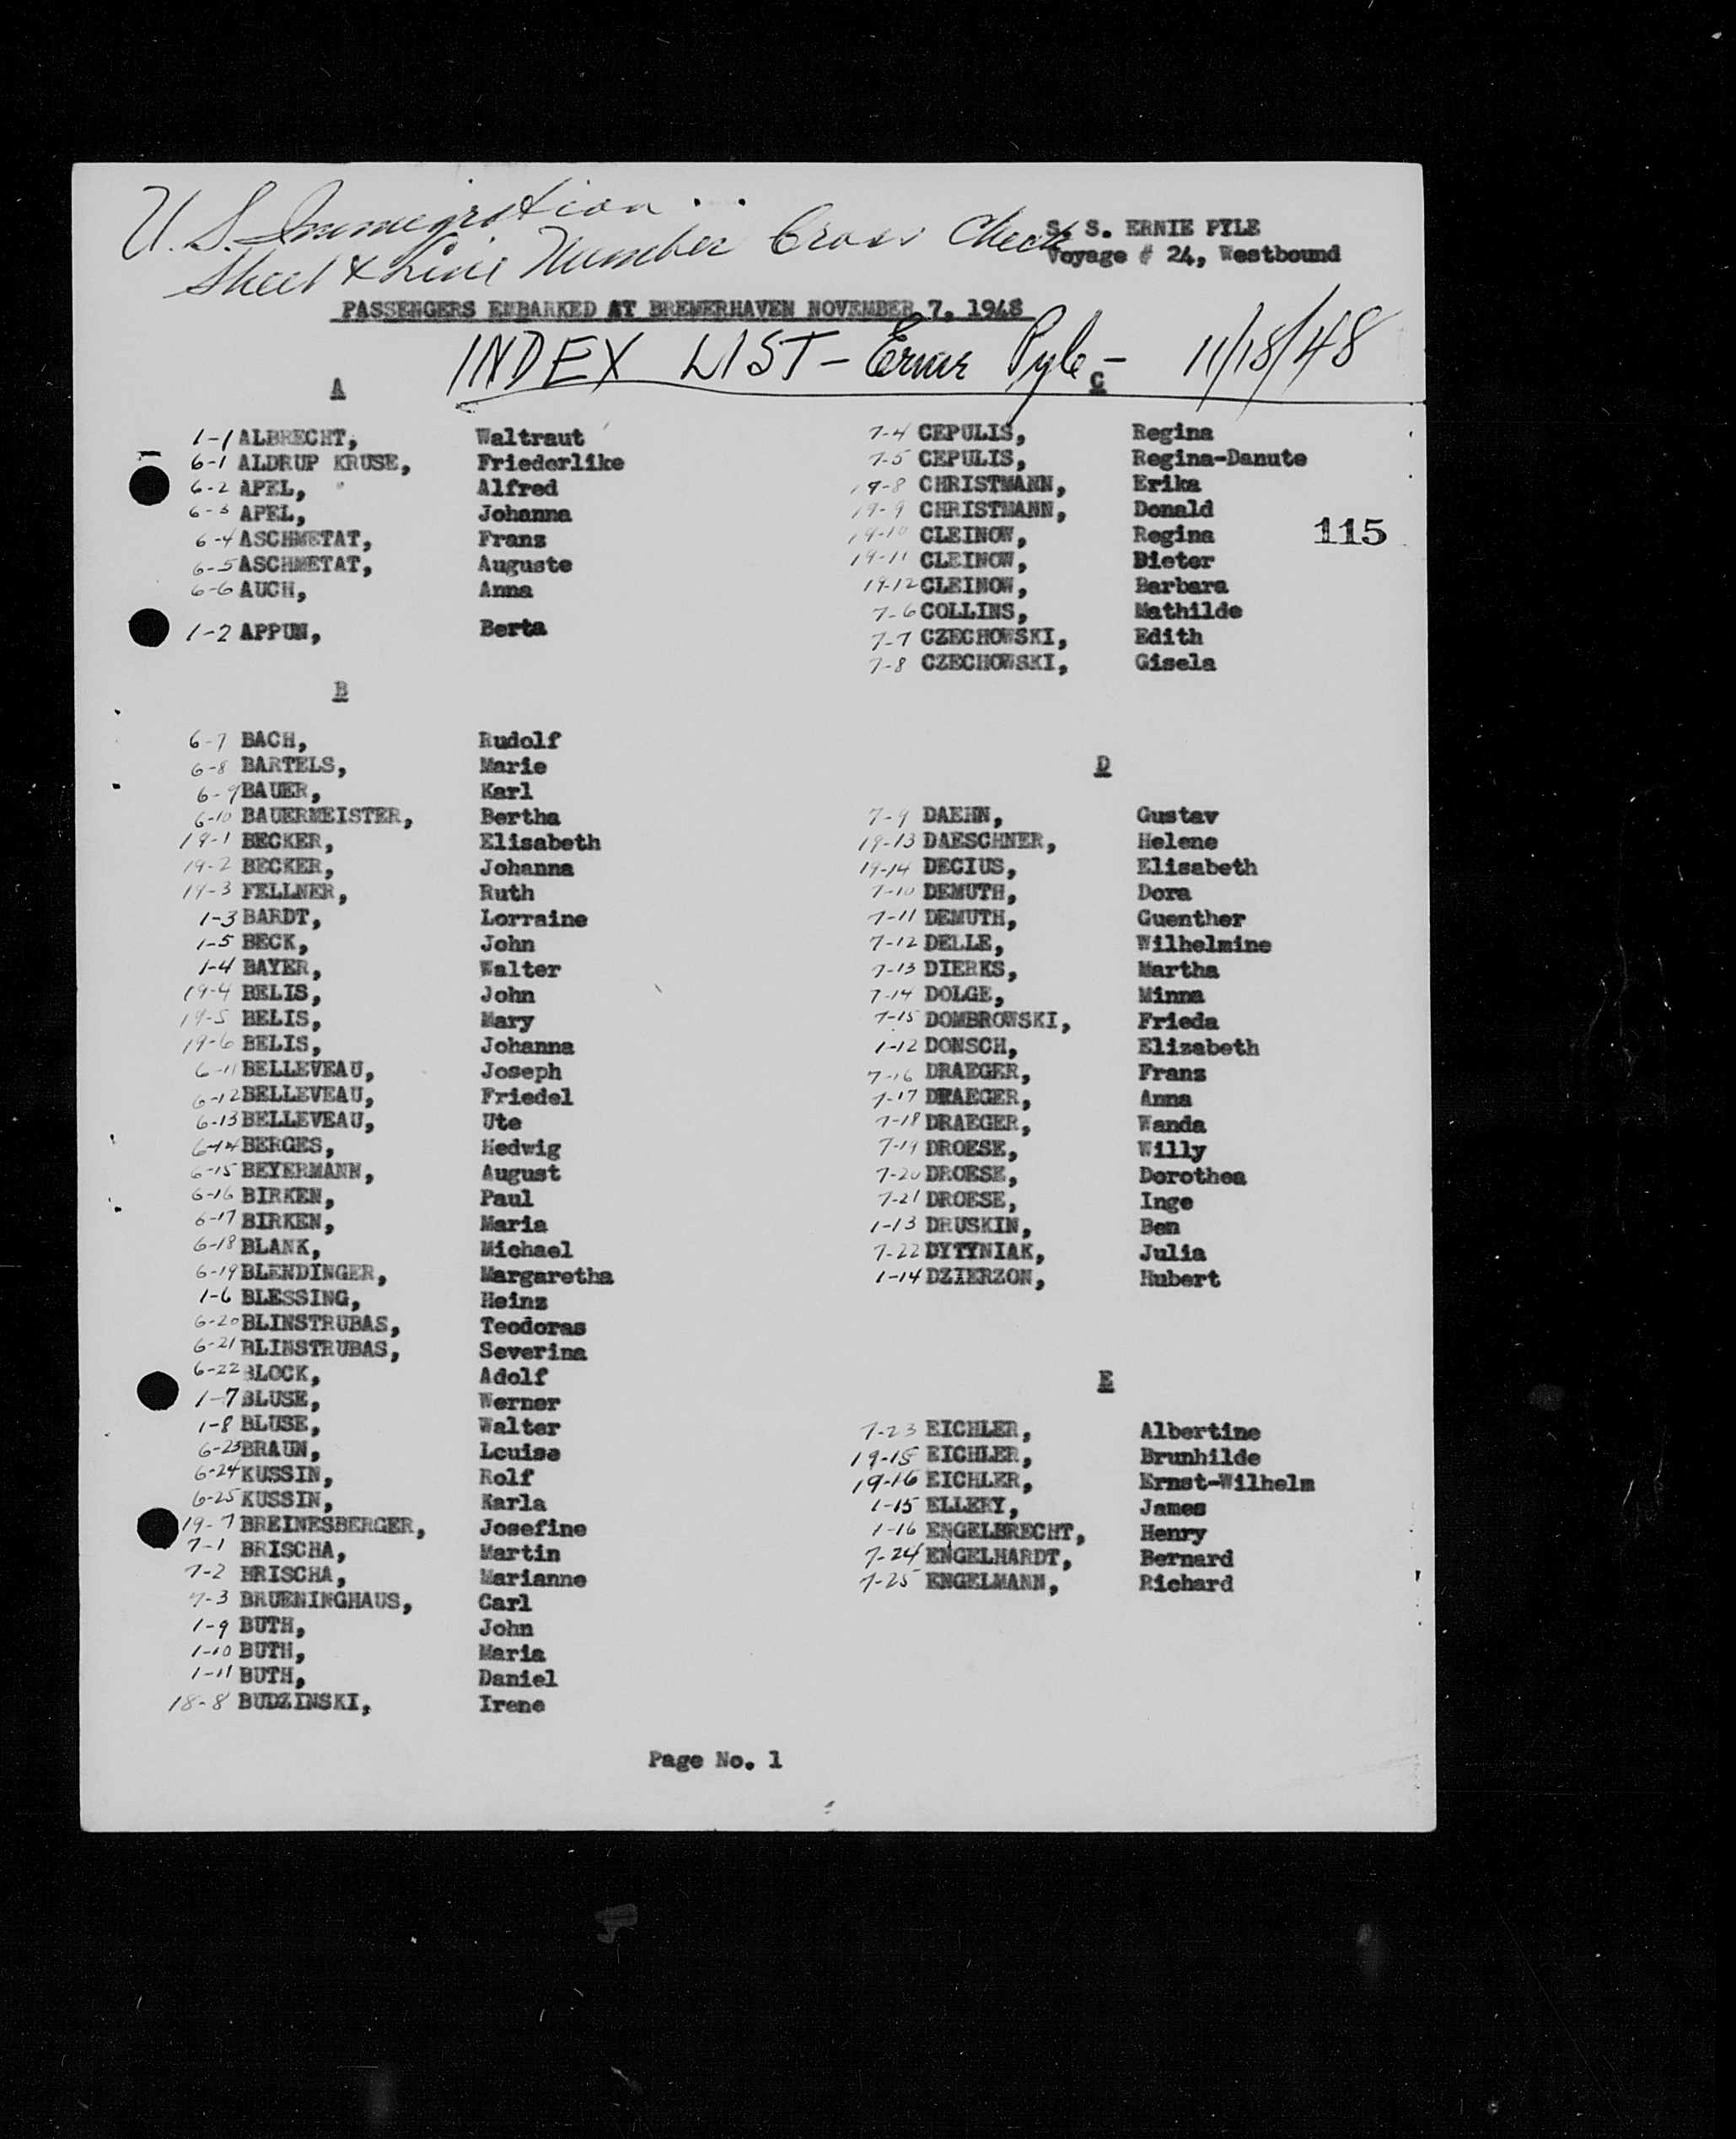 U. S. Immigration
Sheet & Line Number Cross Check
S. S. ERNIE PYLE
Voyage # 24, Westbound
PASSENGERS EMBARKED AT BREMERHAVEN NOVEMBER 7, 1948
INDEX LIST - Ernie Pyle - 11/18/48
A
1-1 ALBRECHT, Waltraut
6-1 ALDRUP KRUSE, Friederlike
6-2 APEL, Alfred
6-3 APEL, Johanna
6-4 ASCHMETAT, Franz
6-5 ASCHMETAT, Auguste
6-6 AUCH, Anna
1-2 APPUN, Berta
B
6-7 BACH, Rudolf
6-8 BARTELS, Marie
6-9 BAUER, Karl
6-10 BAUERMEISTER, Bertha
19-1 BECKER, Elisabeth
19-2 BECKER, Johanna
19-3 FELLNER, Ruth
1-3 BARDT, Lorraine
1-5 BECK, John
1-4 BAYER, Walter
19-4 BELIS, John
19-5 BELIS, Mary
19-6 BELIS, Johanna
6-11 BELLEVEAU, Joseph
6-12 BELLEVEAU, Friedel
6-13 BELLEVEAU, Ute
6-14 BERGES, Hedwig
6-15 BEYERMANN, August
6-16 BIRKEN, Paul
6-17 BIRKEN, Maria
6-18 BLANK, Michael
6-19 BLENDINGER, Margaretha
1-6 BLESSING, Heinz
6-20 BLINSTRUBAS, Teodoras
6-21 BLINSTRUBAS, Severina
6-22 BLOCK, Adolf
1-7 BLUSE, Werner
1-8 BLUSE, Walter
6-23 BRAUN, Louise
6-24 KUSSIN, Rolf
6-25 KUSSIN, Karla
19-7 BREINESBERGER, Josefine
7-1 BRISCHA, Martin
7-2 BRISCHA, Marianne
7-3 BRUENINGHAUS, Carl
1-9 BUTH, John
1-10 BUTH, Maria
1-11 BUTH, Daniel
18-8 BUDZINSKI, Irene
C
7-4 CEPULIS, Regina
7-5 CEPULIS, Regina-Danute
19-8 CHRISTMANN, Erika
19-9 CHRISTMANN, Donald
19-10 CLEINOW, Regina
115
19-11 CLEINOW, Dieter
19-12 CLEINOW, Barbara
7-6 COLLINS, Mathilde
7-7 CZECHOWSKI, Edith
7-8 CZECHOWSKI, Gisela
D
7-9 DAEHN, Gustav
19-13 DAESCHNER, Helene
19-14 DECIUS, Elisabeth
7-10 DEMUTH, Dora
7-11 DEMUTH, Guenther
7-12 DELLE, Wilhelmine
7-13 DIERKS, Martha
7-14 DOLGE, Minna
7-15 DOMBROWSKI, Frieda
1-12 DONSCH, Elizabeth
7-16 DRAEGER, Franz
7-17 DRAEGER, Anna
7-18 DRAEGER, Wanda
7-19 DROESE, Willy
7-20 DROESE, Dorothea
7-21 DROESE, Inge
1-13 DRUSKIN, Ben
7-22 DYTYNIAK, Julia
1-14 DZIERZON, Hubert
E
7-23 EICHLER, Albertine
19-15 EICHLER, Brunhilde
19-16 EICHLER, Ernst-Wilhelm
1-15 ELLERY, James
1-16 ENGELBRECHT, Henry
7-24 ENGELHARDT, Bernard
7-25 ENGELMANN, Richard
Page No. 1